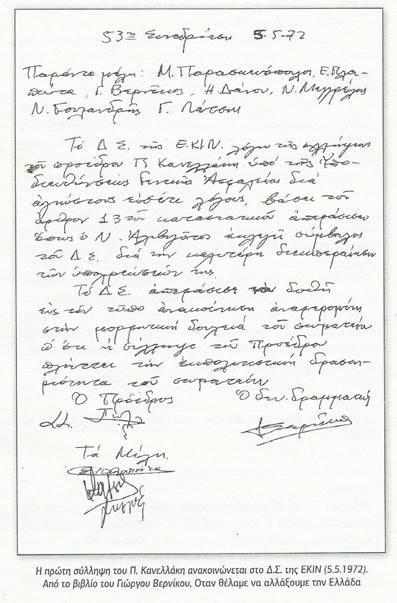 53η Συνεδρίαση 5.5.72
Παρόντα μέλη: Μ. Παρασκευόπουλος, Ε. Πλα-
πούτα, Γ. Βερνίκος, Η. Δάνου, Ν. Μεγρέλης
Ν. Γουλανδρής Γ. Λάτση
Τό Δ.Σ. της Ε.ΚΙ.Ν. λόγω τῆς συλλήψεως
τοῦ προέδρου Π. Κανελλάκη ὑπό της Ὑπο-
διευθύνσεως Γενικῆς Ἀσφαλείας διά
ἀγνώστους εἰσέτι λόγους, βάσει τοῦ
ἄρθρου 13 τοῦ καταστατικοῦ ἀπεφάσισε
ὅπως ὁ Ν. Ἀλιβιζᾶτος ἐκλεγῆ σύμβουλος
τοῦ Δ.Σ. διά τήν καλυτέρα διεκπεραίωση
τῶν ὑποχρεώσεών της.
Τό Δ.Σ. ἀπεφάσισε νά δοθῆ
εἰς τόν τύπο ἀνακοίνωση ἀναφερομένη
στήν μορφωτική δουλειά τοῦ σωματείου
ὅτι ἡ σύλληψη τοῦ Προέδρου
πλήττει τήν ἐκπολιτιστική δραστη-
ριότητα τοῦ σωματείου
Ὁ Πρόεδρος Ὁ Γεν. Γραμματεύς
Τά Μέλη
Η πρώτη σύλληψη του Π. Κανελλάκη ανακοινώνεται στο Δ.Σ. της ΕΚΙΝ (5.5.1972).
Από το βιβλίο του Γιώργου Βερνίκου, Όταν θέλαμε να αλλάξουμε την Ελλάδα